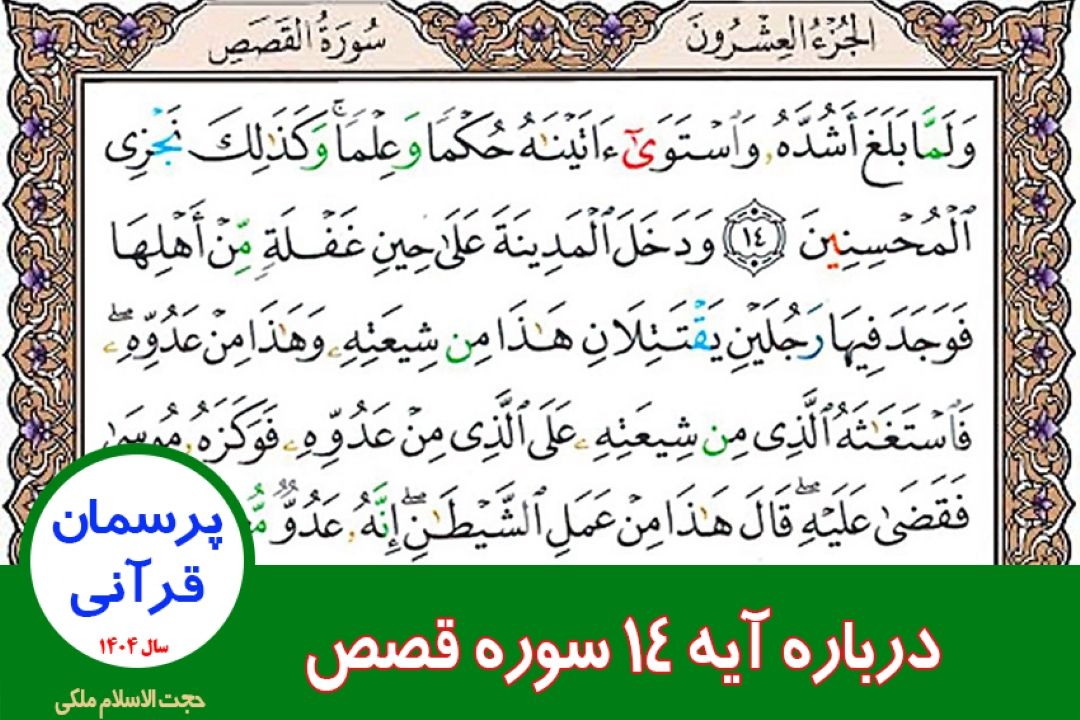 الجزء العشرون
سورة القصص
وَلَمَّا بَلَغَ أَشُدَّهُۥ وَٱسْتَوَىٰٓ ءَاتَيْنَٰهُ حُكْمًا وَعِلْمًا ۚ وَكَذَٰلِكَ نَجْزِى
ٱلْمُحْسِنِينَ ١٤ وَدَخَلَ ٱلْمَدِينَةَ عَلَىٰ حِينِ غَفْلَةٍ مِّنْ أَهْلِهَا
فَوَجَدَ فِيهَا رَجُلَيْنِ يَقْتَتِلَانِ هَٰذَا مِن شِيعَتِهِۦ وَهَٰذَا مِنْ عَدُوِّهِۦ ۖ
فَٱسْتَغَٰثَهُ ٱلَّذِى مِن شِيعَتِهِۦ عَلَى ٱلَّذِى مِنْ عَدُوِّهِۦ فَوَكَزَهُۥ مُوسَىٰ
فَقَضَىٰ عَلَيْهِ ۖ قَالَ هَٰذَا مِنْ عَمَلِ ٱلشَّيْطَٰنِ ۖ إِنَّهُۥ عَدُوٌّ
پرسمان
قرآنی
سال ۱۴۰۴
حجت الاسلام ملکی
درباره آیه ١٤ سوره قصص